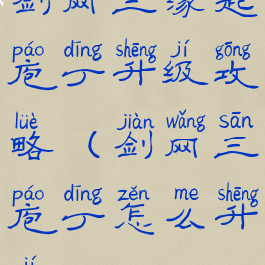 剑网三缘起
páo dīng shēng jí gōng
庖丁升级攻
lüè jiàn wǎng sān
略（剑网三
páo dīng zěn me shēng
庖丁怎么升
jí